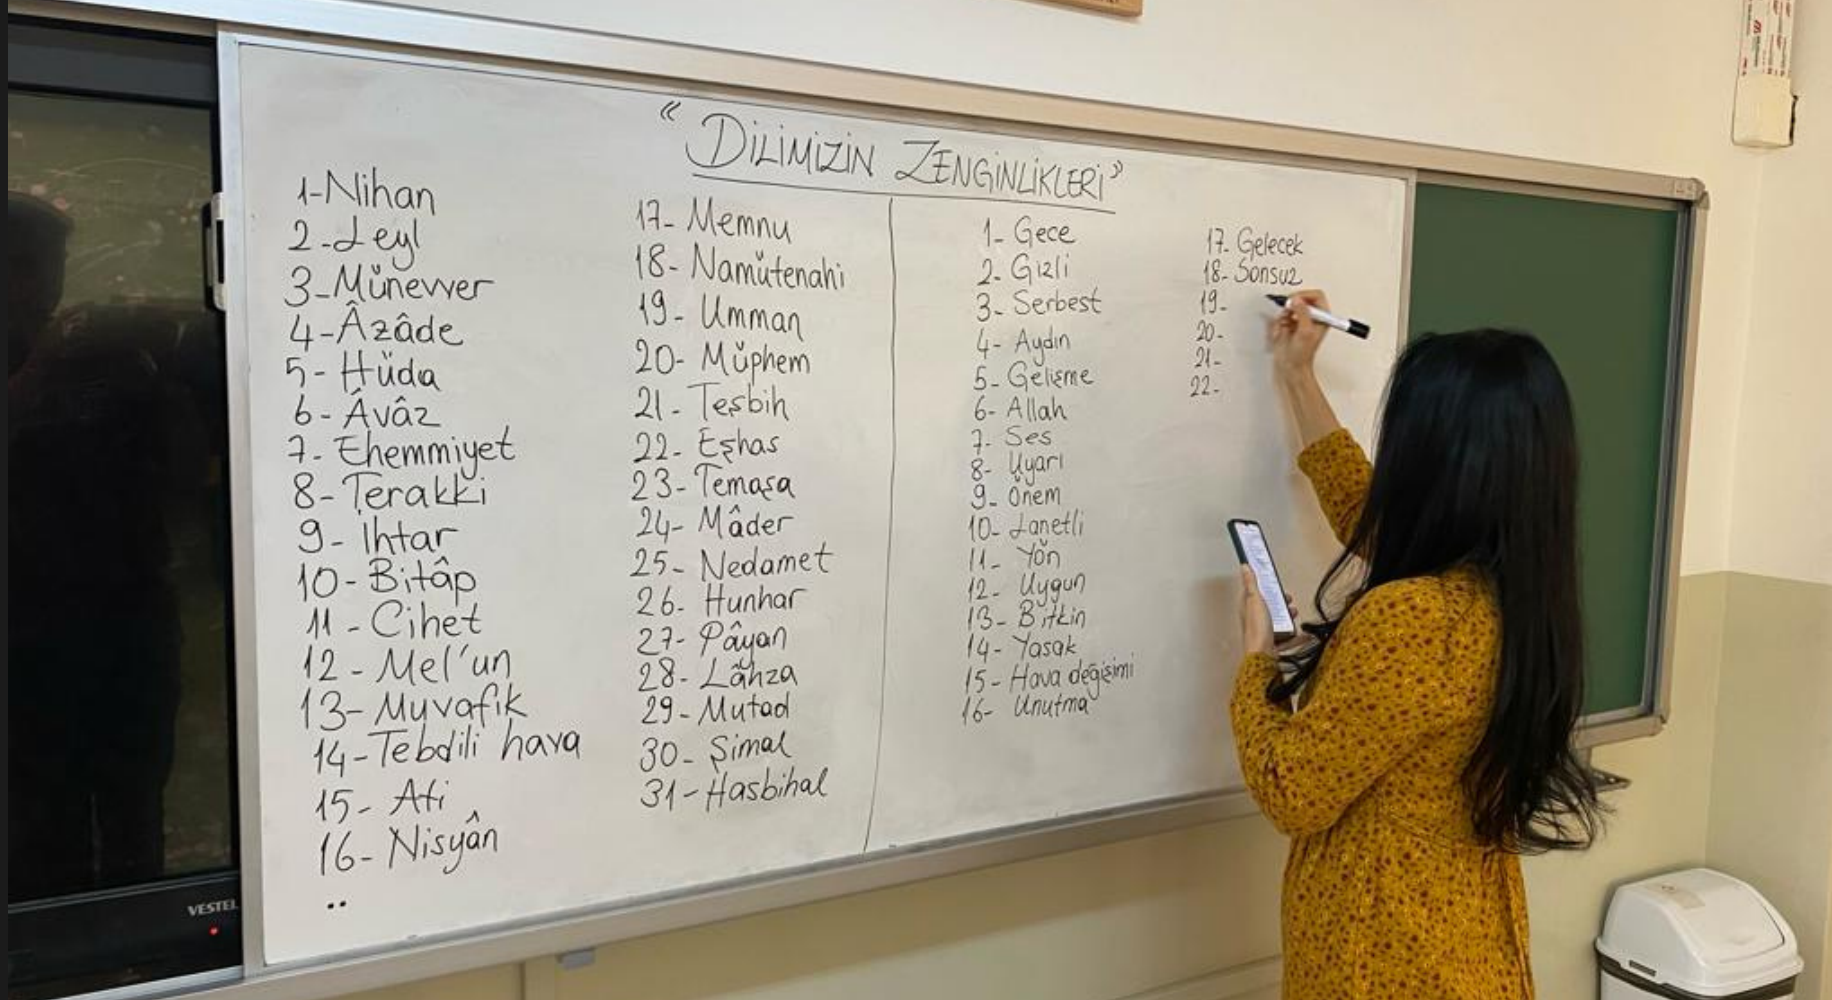 “ DİLİMİZİN ZENGİNLİKLERİ”
1-Nihan
2-Leyl
3-Münevver
4-Âzâde
5-Hüda
6-Âvâz
7-Ehemmiyet
8-Terakki
9-Ihtar
10-Bitâp
11-Cihet
12-Mel'un
13-Muvafık
14-Tebdili hava
15-Ati
16-Nisyân
..
17-Memnu
18-Namütenahi
19-Umman
20-Müphem
21-Teşbih
22-Eşhas
23-Temaşa
24-Mâder
25-Nedamet
26-Hunhar
27-Pâyan
28-Lâhza
29-Mutad
30-Şimal
31-Hasbihal
1-Gece
2-Gizli
3-Serbest
4-Aydın
5-Gelişme
6-Allah
7-Ses
8-Uyarı
9-Önem
10-Lanetli
11-Yön
12-Uygun
13-Bitkin
14-Yasak
15-Hava değişimi
16-Unutma
17-Gelecek
18-Sonsuz
19-
20-
21-
22-
VESTEL